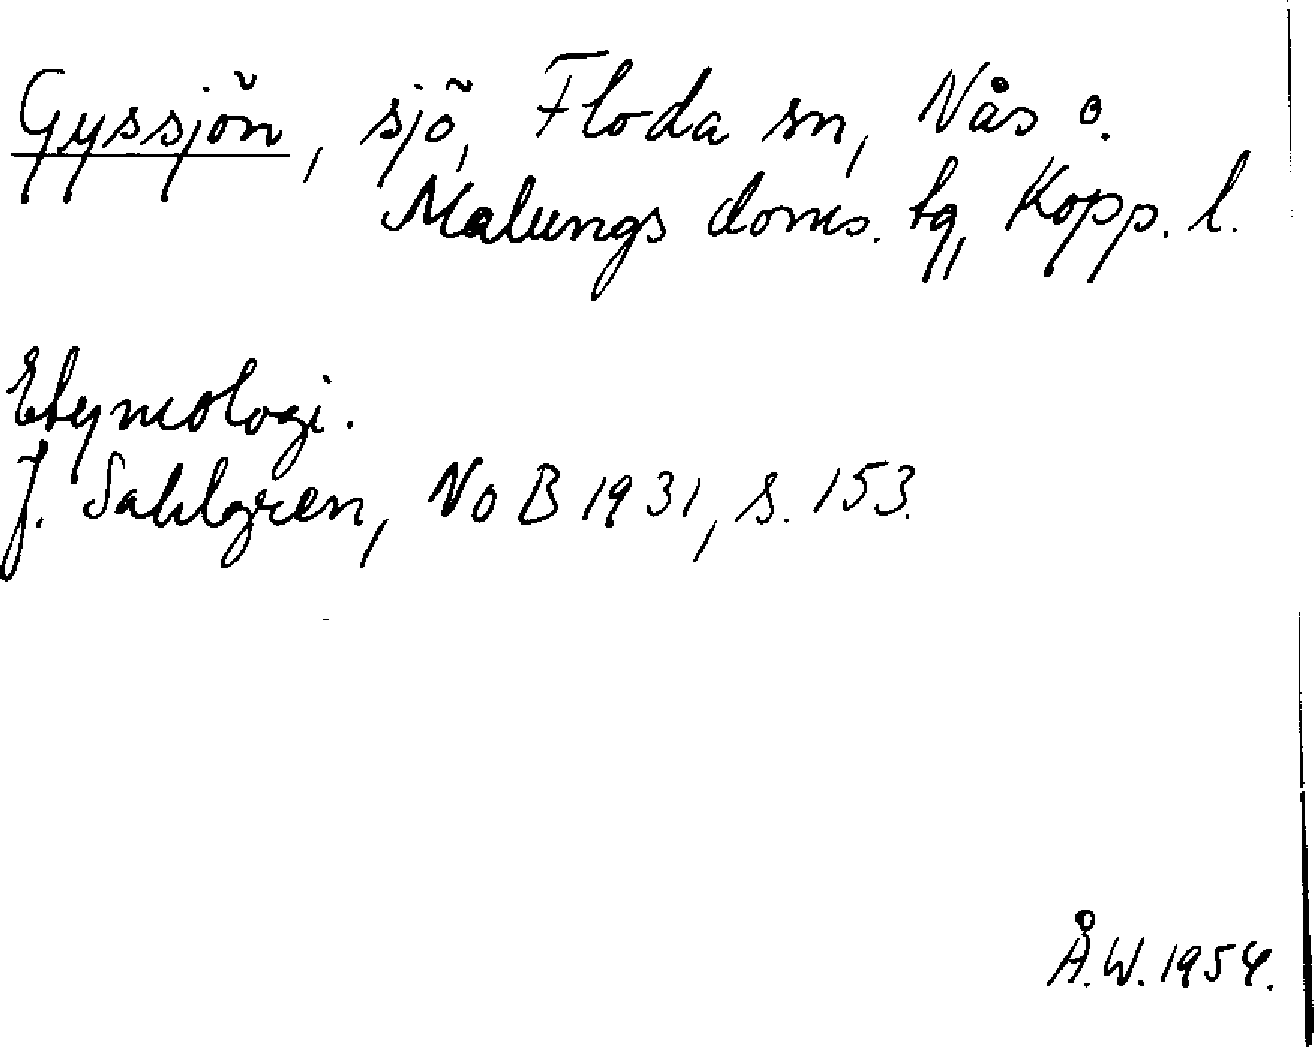 Gyssjön, sjö, Floda sn, Nås o.
Malungs doms. tg, Kopp. l.
Etymologi.
J. Sahlgren, NoB 1931, s. 153.
Å.W. 1954.